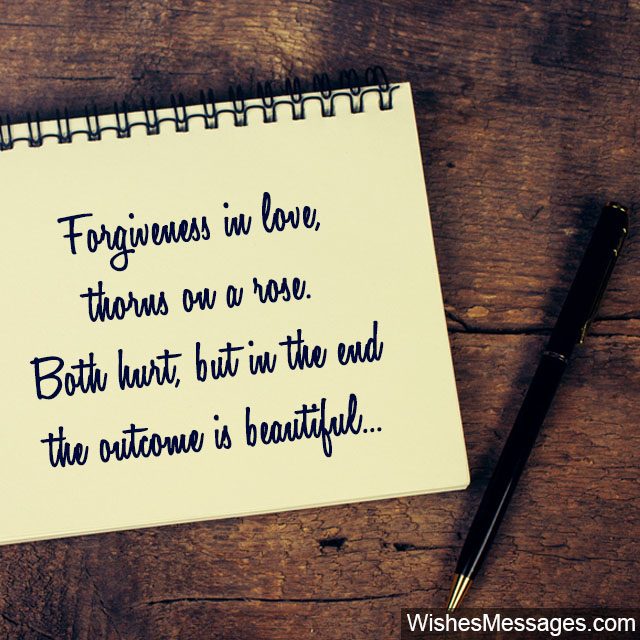 Forgiveness in love,
thorns on a rose.
Both hurt, but in the end
the outcome is beautiful...
WishesMessages.com